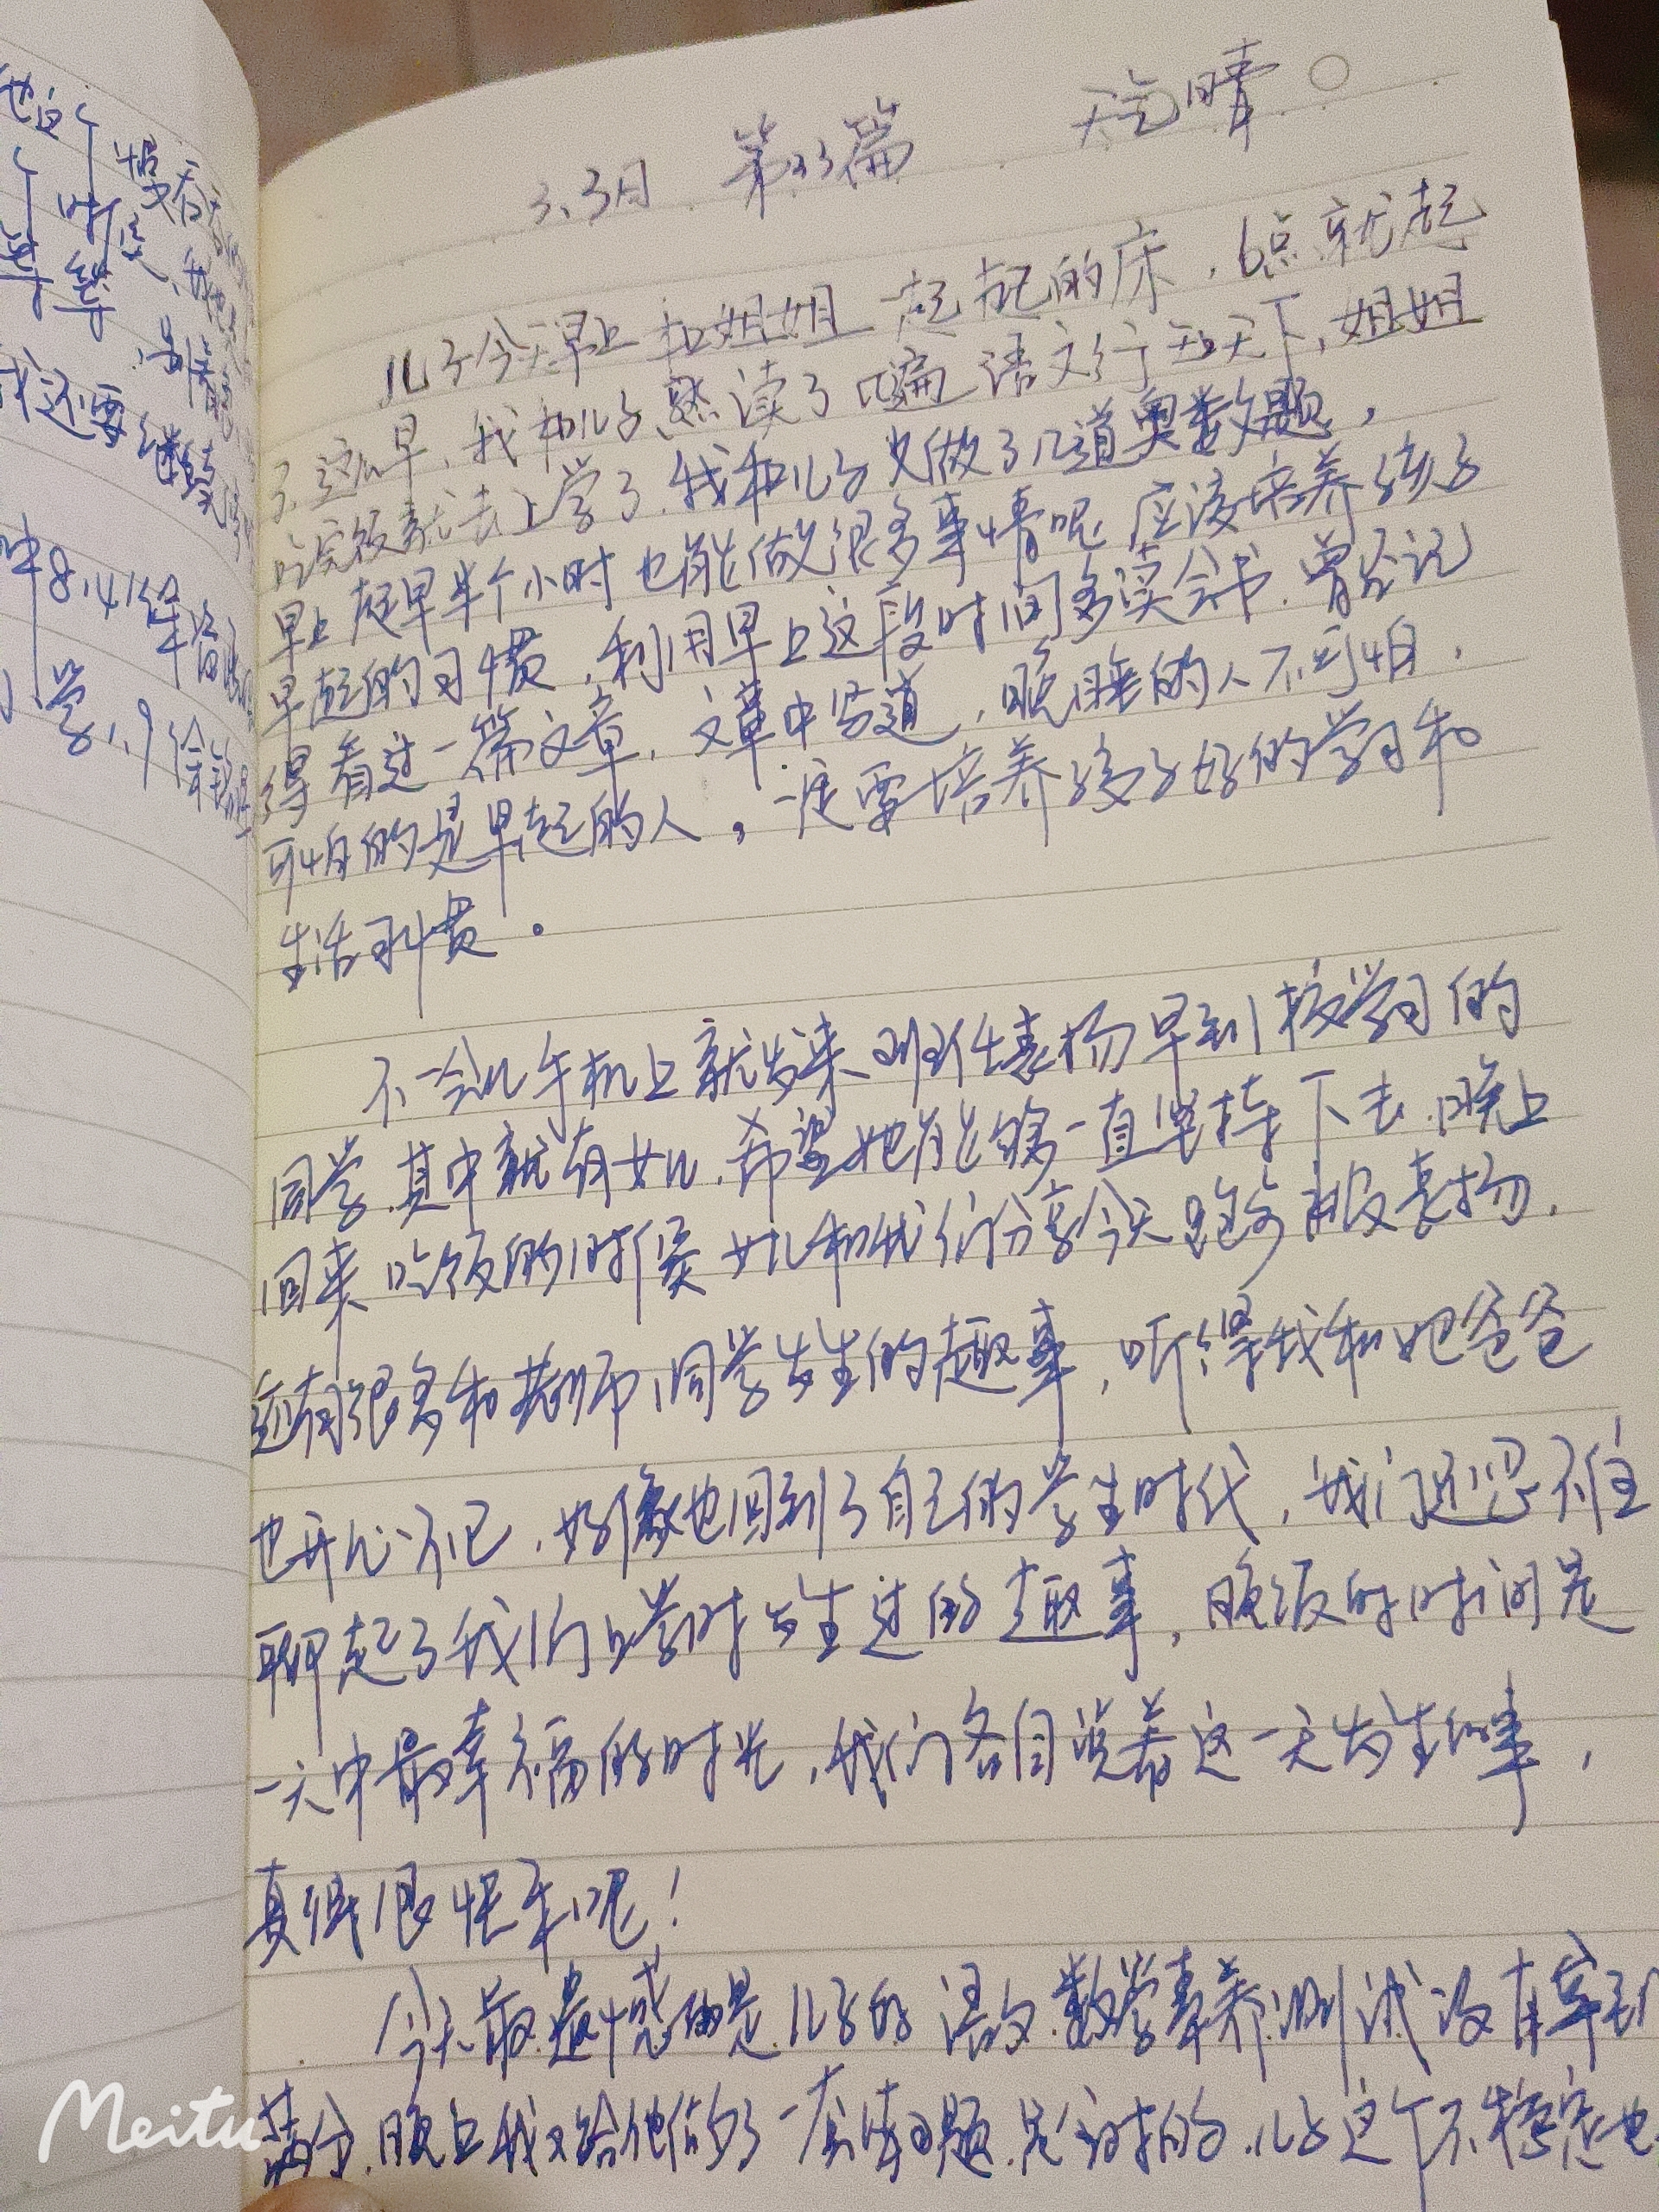 他这个
我还要继续
8,41
小学1,9
3、3日 第33篇 天气晴
儿子今天早上和姐姐一起起的床,6点就起
了这么早,我和儿子熟读了几遍语文行天下,姐姐
吃完饭就去上学了.我和儿子又做了几道奥数题,
早上起早半个小时也能做很多事情呢 应该培养孩子
早起的习惯,利用早上这段时间多读会书.曾经记
得看过一篇文章,文章中写道,晚睡的人不可怕,
可怕的是早起的人,一定要培养孩子好的学习和
生活习惯。
不一会儿手机上就发来班任表扬早到校学习的
同学.其中就有女儿.希望她能够一直坚持下去.晚上
回来吃饭的时候女儿和我们分享今天跑步被表扬.
还有很多和老师,同学发生的趣事,听得我和她爸爸
也开心不已,好像也回到了自己的学生时代,我们还忍不住
聊起了我们上学时发生过的趣事,晚饭的时间是
一天中最幸福的时光,我们各自说着这一天发生的事,
真得很快乐呢!
今天最遗憾的是儿子的语文.数学素养测试没有拿到
满分.晚上我又给他做了一套练习题.是全对的.儿子这个不稳定也
Meitu